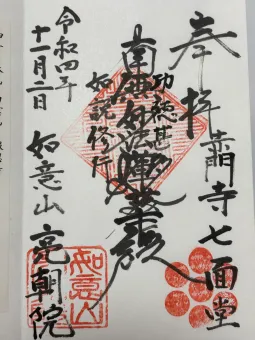 奉拝 赤門寺七面堂
功徳甚
南無妙法蓮華経
如説修行
如意山 亮朝院
令和四年
十一月二日
如意山